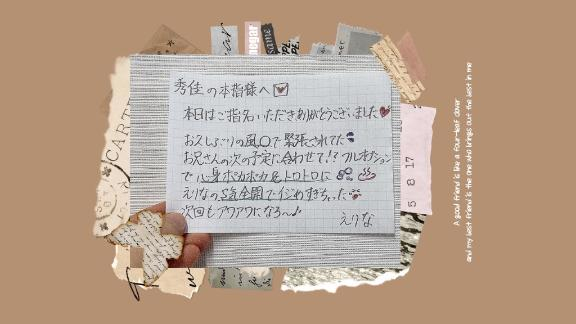 秀佳の本指様へ
本日はご指名いただきありがとうございました
お久しぶりの風〇で緊張されてた
お兄さんの次の予定に合わせて!? フルオプション
で心身ポカポカ&トロトロに
えりなのS気全開でイジめすぎちゃった
次回もアワアワになろ〜♪
えりな
A good friend is like a four-leaf clover
and my best friend is the one who brings out the best in me
CARTE
5 8 17